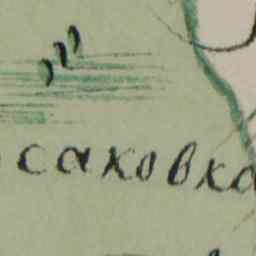 саковка